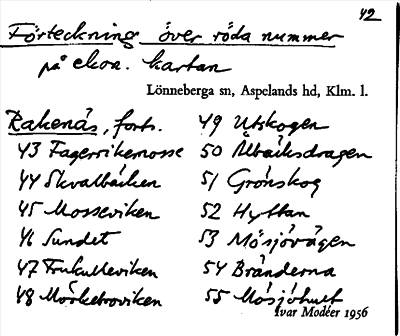 42
Förteckning över röda nummer
på ekon. kartan
Lönneberga sn, Aspelands hd, Klm. l.
Rakenäs, forts.
43 Fagerrikemosse
44 Skvalbäcken
45 Mosseviken
46 Sundet
47 Frukulleviken
48 Mörkebroviken
49 Utskogen
50 Älbäcksdragen
51 Grönskog
52 Hyttan
53 Mösjövägen
54 Bränderna
55 Mösjöhult
Ivar Modéer 1956